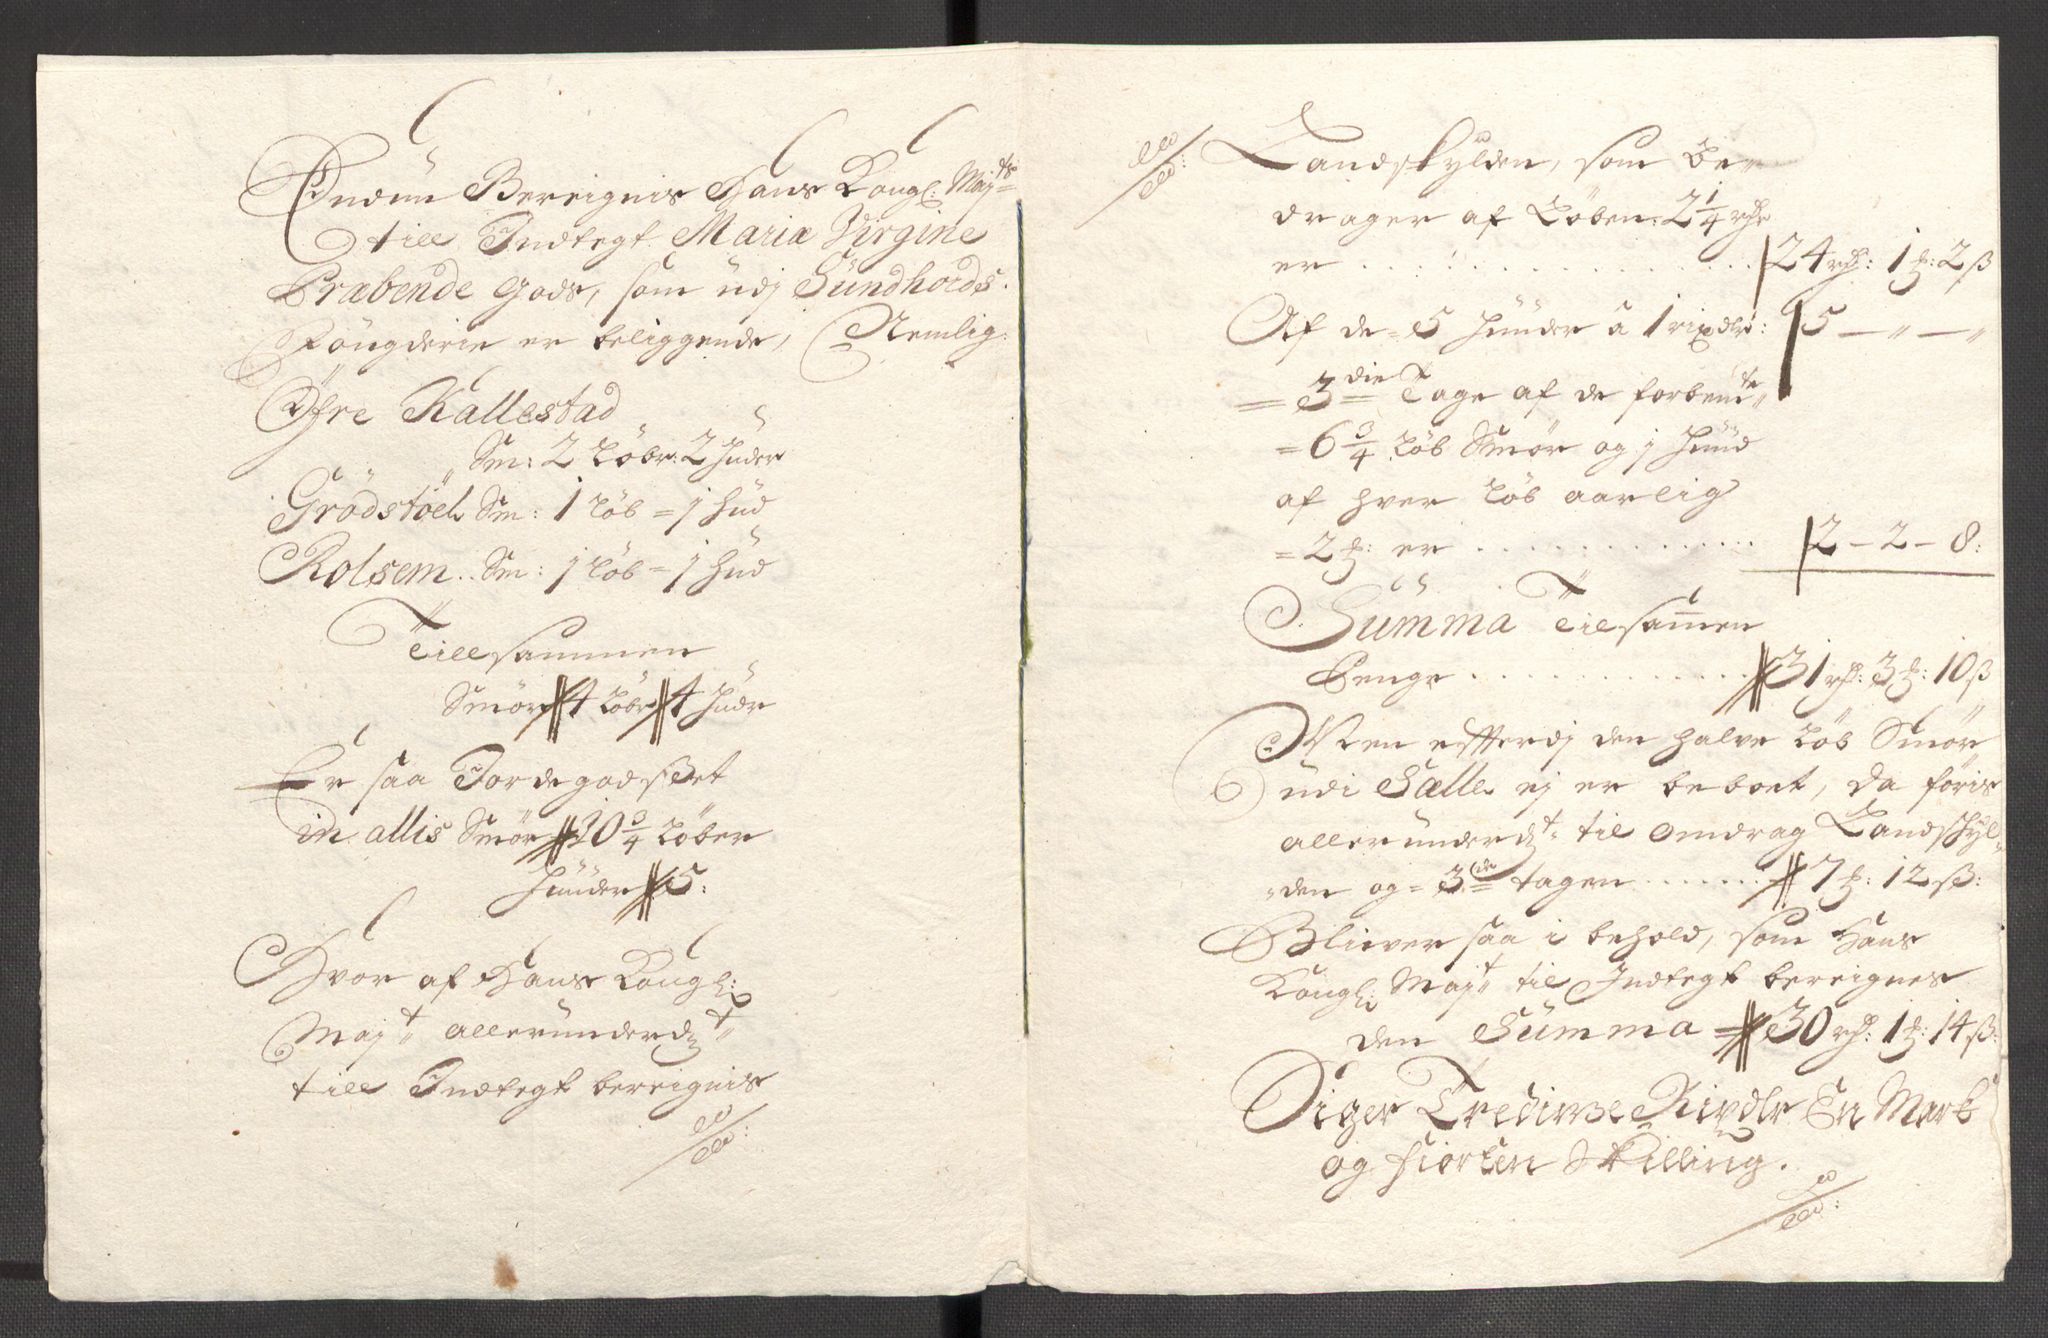 Endnü Bereignis Hans Kongl: Maj:ts
till Indtegt Maria Virgine
Præbende gods, som udj Sündhords
Fougderie er beliggende, Nemlig:
Øfre Kallestad
Sm: 2 Løber: 2 Huder
Grødstøel Sm: 1 Løb = j Hüd
Rolsem .. Sm: j Løb = j Hüd
Till sammen
Smør 4 Løbr 4 Hüdr
Er saa Jordegodsset
in allis Smør 10 3/4 Løber
Hüüder 5:
Hvor af Hans Kongl:
Maj:t allerunderd:t
till Indtegt bereignis
Landskylden, som be-
drager af Løben: 2 1/4 rdr
er . . . . . . . . . . . . 24 rdr: 1 ₻: 2 ß
Af de = 5 Hüüder â 1 rixdlr: 5 — „ — „
= 3die Tage af de forbente
= 6 3/4 Løb Smør og j Hüüd
af hver Løb aarlig
= 2 ₻: er . . . . . . . . . . . 2 – 2 – 8:
Sümma Tilsamen
Penge . . . . . . . . . . . . 31 rdr: 3 ₻: 10 ß
Men effterdj den halve Løb Smør
udi Sælle ej er beboet, da føris
allerunderd:t til Omdrag Landskyl-
den og = 3die tagen . . . . . . 7 ₻: 12 ß:
Bliever saa i behold, som Hans
Kongl: Maj:t til Indtegt bereignes
den Sümma 30 rdr: 1 ₻: 14 ß:
Siger Tredivve Rixdlr En Mark
og fiorten Skilling.